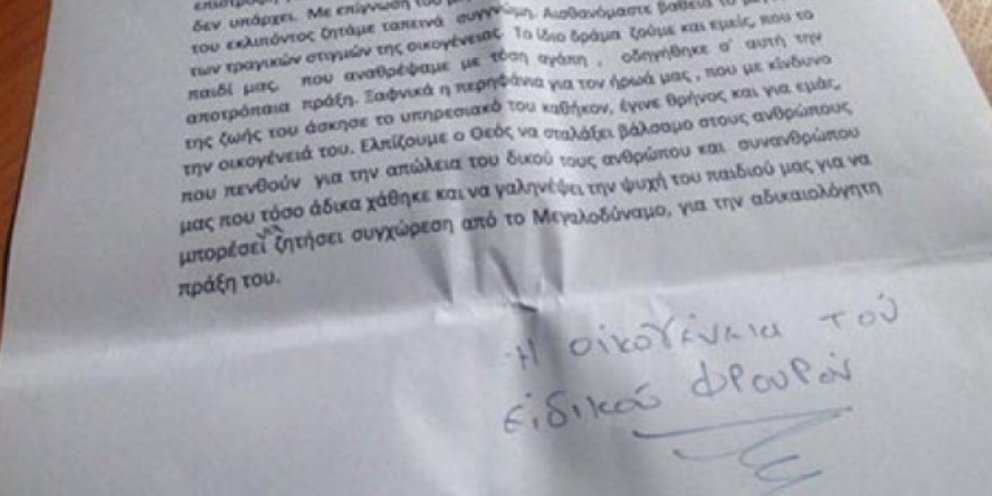 δεν υπάρχει. Με επίγνωση του
του εκλιπόντος ζητάμε ταπεινά συγγνώμη. Αισθανόμαστε βαθειά το
των τραγικών στιγμών της οικογένειας. Το ίδιο δράμα ζούμε και εμείς, που το
παιδί μας, που αναθρέψαμε με τόση αγάπη , οδηγήθηκε σ' αυτή την
αποτρόπαια πράξη. Ξαφνικά η περηφάνια για τον ήρωά μας , που με κίνδυνο
της ζωής του άσκησε το υπηρεσιακό του καθήκον, έγινε θρήνος και για εμάς,
την οικογένειά του. Ελπίζουμε ο Θεός να σταλάξει βάλσαμο στους ανθρώπους
που πενθούν για την απώλεια του δικού τους ανθρώπου και συνανθρώπου
μας που τόσο άδικα χάθηκε και να γαληνέψει την ψυχή του παιδιού μας για να
μπορέσει να ζητήσει συγχώρεση από το Μεγαλοδύναμο, για την αδικαιολόγητη
πράξη του.
Η οικογένεια του
ειδικού φρουρού